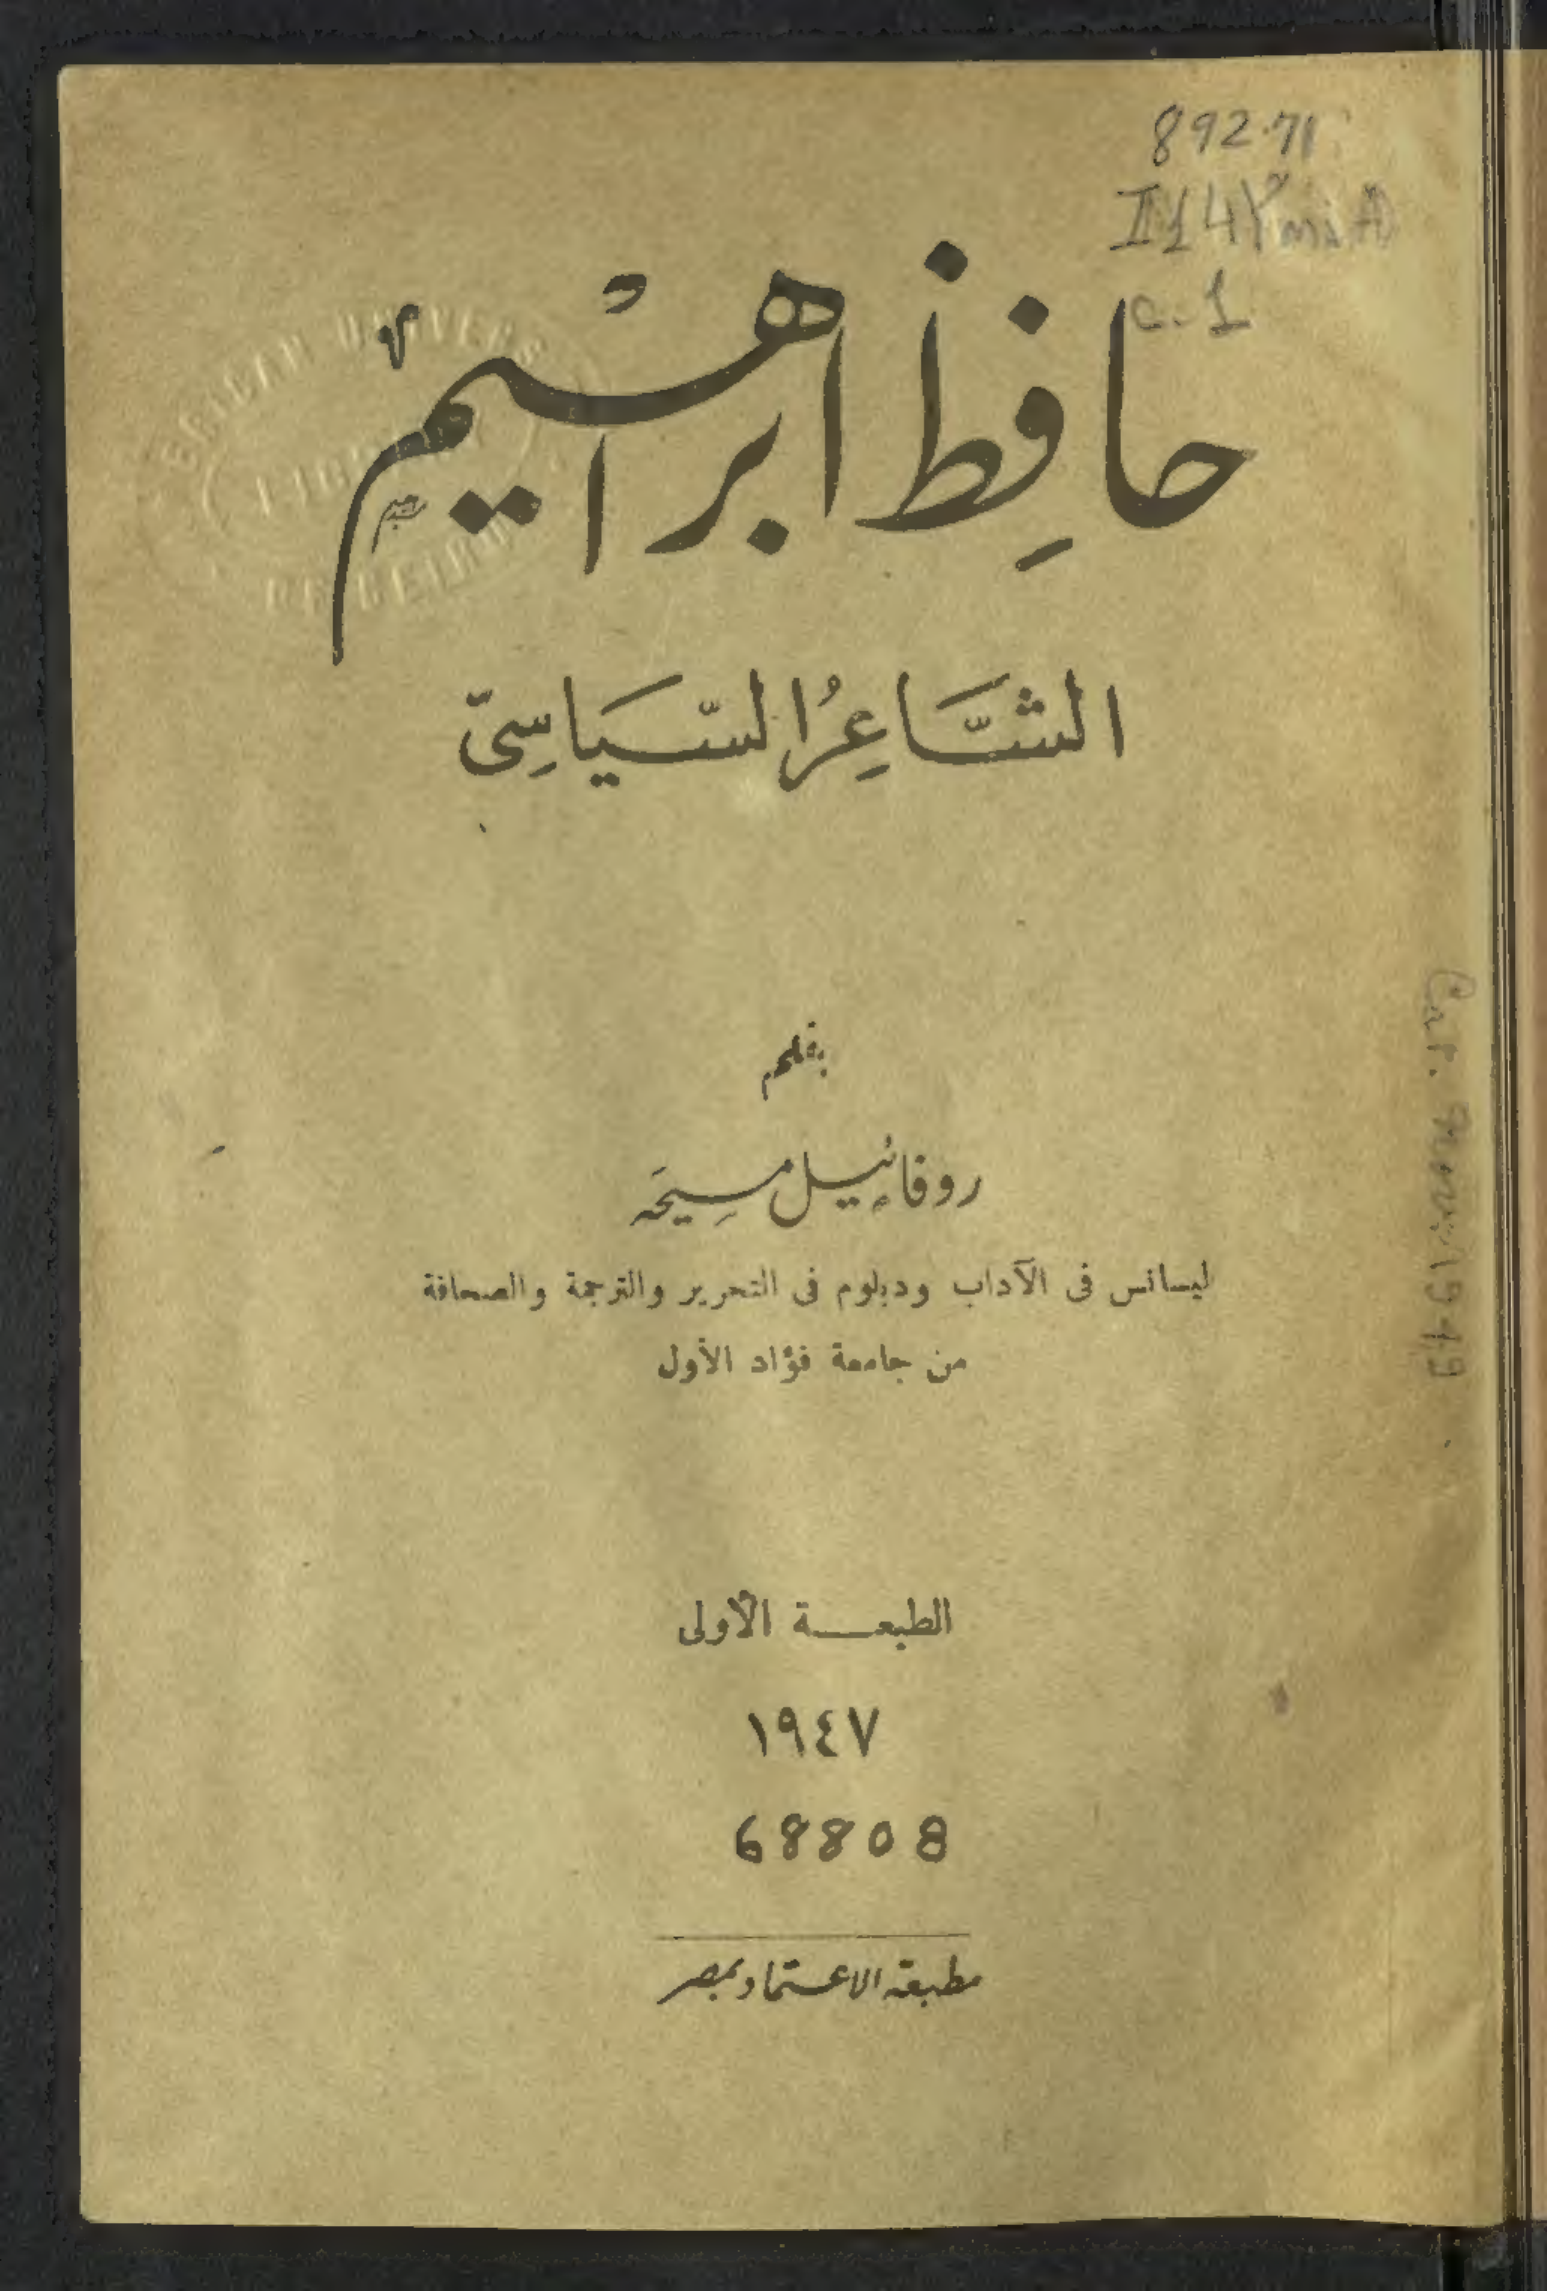 892.71
c.1
حافِظ ابراهيمُ
الشَّاعِرُ السّيَاسِىّ
بقلم
روفائيل مسيحَه
ليسانس فى الآداب ودبلوم فى التحرير والترجمة والصحافة
من جامعة فؤاد الأول
الطبعـــة الأولى
١٩٤٧
68808
مطبعة الاعتماد بمصر
Cat. Nov. 1949